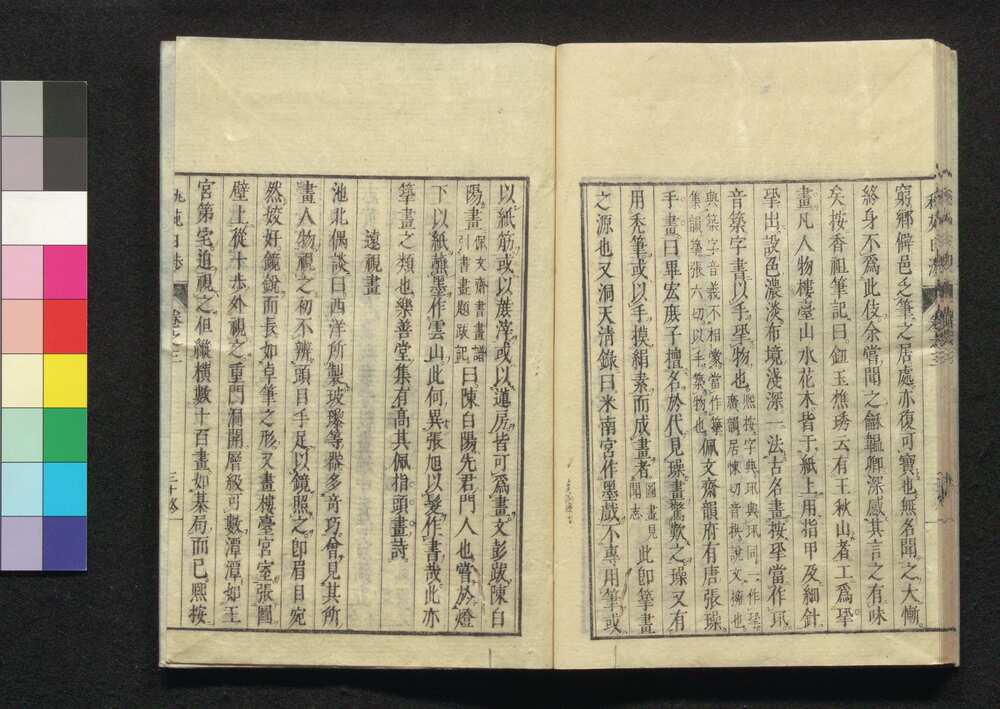 窮鄉僻邑乏筆之居處亦復可寶也無名聞之大慚
終身不爲此伎余嘗聞之龢韞卿深感其言之有味
矣按香祖筆記曰釰玉樵琇云有王秋山者工爲㧬
畫凡人物樓臺山水花木皆于紙上用指甲及細針
㧬出設色濃淡布境淺深一法古名畫按㧬當作㺬
音築字書以手㧬物也
廣韻居悚切音拱說文攤也
集韻築張六切以手築物也
佩文齋韻府有唐張璪
手畫曰畢宏庶子擅名於代見璪畫驚歎之璪又有
用禿筆或以手摸絹素而成畫者圖畫見聞志此卽筆畫
之源也又洞天淸錄曰米南宮作墨戲不專用筆或
以紙筋或以蔗滓或以蓮房皆可爲畫文彭跋陳白
陽畫佩文齋書畫譜引書畫題跋記曰陳白陽先君門人也嘗於燈
下以紙蘸墨作雲山此何異張旭以髮作書哉此亦
筆畫之類也樂善堂集有高其佩指頭畫詩
遠視畫
池北偶談曰西洋所製玻瓈等器多奇巧曾見其所
畫人物視之初不辨頭目手足以鏡照之卽眉目宛
然姣好鏡銳而長如卓筆之形又畫樓臺宮室張圖
壁上從十步外視之重門洞開層級可數潭潭如王
宮第宅迫視之但縱橫數十百畫如棊局而已熙按
卷之三